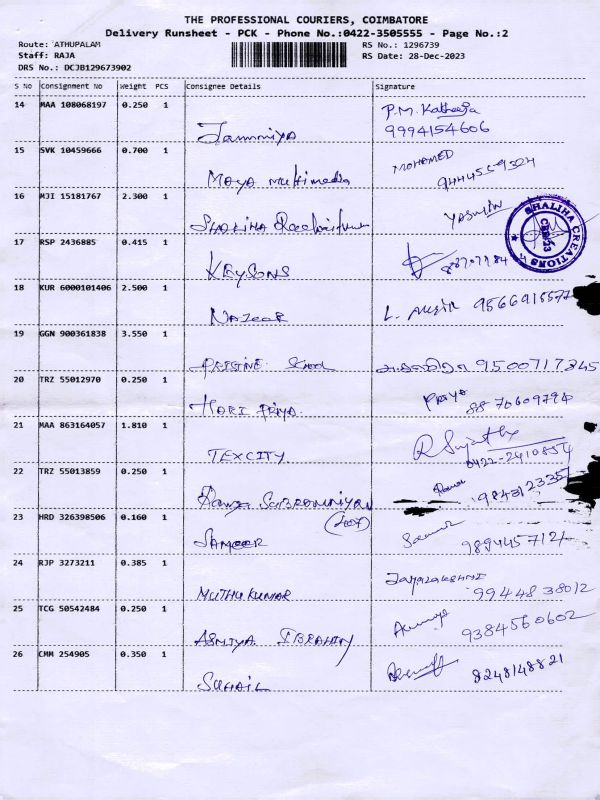 THE PROFESSIONAL COURIERS, COIMBATORE
Delivery Runsheet - PCK - Phone No.:0422-3505555 - Page No.:2
Route: ATHUPALAM RS No.: 1296739
Staff: RAJA RS Date: 28-Dec-2023
DRS No.: DCJB129673902
S No Consignment No Weight PCS Consignee Details Signature
14 MAA 108068197 0.250 1 P.M. Katheeja
9994154606
15 SVK 10459666 0.700 1 MOHAMED
Maya Multimedia
16 MJI 15181767 2.300 1 YASMIN
SHALIHA CREATIONS
17 RSP 2436885 0.415 1
KEYSONS
18 KUR 6000101406 2.500 1
NAZEER
19 GGN 900361838 3.550 1
PRISTINE School 9500717345
20 TRZ 55012970 0.250 1 PRIYA
HARI PRIYA 8870609794
21 MAA 863164057 1.810 1
TEXCITY 0422-2410854
22 TRZ 55013859 0.250 1
9843123357
23 HRD 326398506 0.160 1
SAMEER
24 RJP 3273211 0.385 1 JAYALAKSHMI
MUTHU KUMAR 9944838012
25 TCG 50542484 0.250 1
ASMIYA IBRAHIM 9384560602
26 CMM 254905 0.350 1 8248148821
SUHAIL